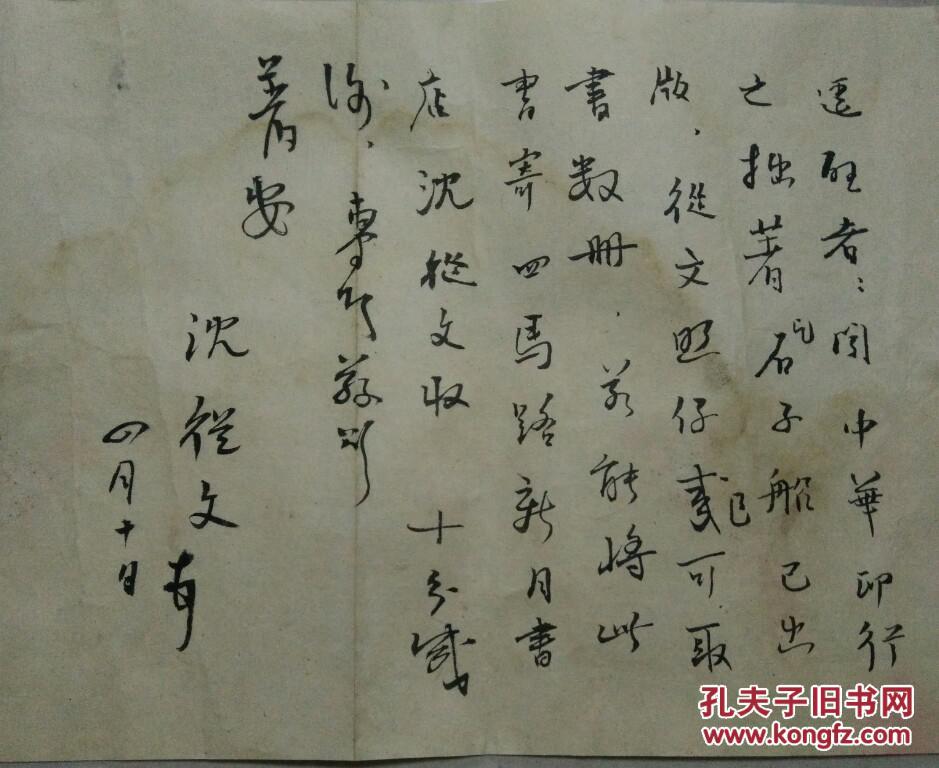 迳啟者：聞中華印行
之拙著石子船已出
版，從文照仔或可取
書数册．若能將此
書寄四馬路新月書
店沈從文收 十分感
謝，專此敬頌
著安
沈從文
四月十日
孔夫子旧书网
www.kongfz.com